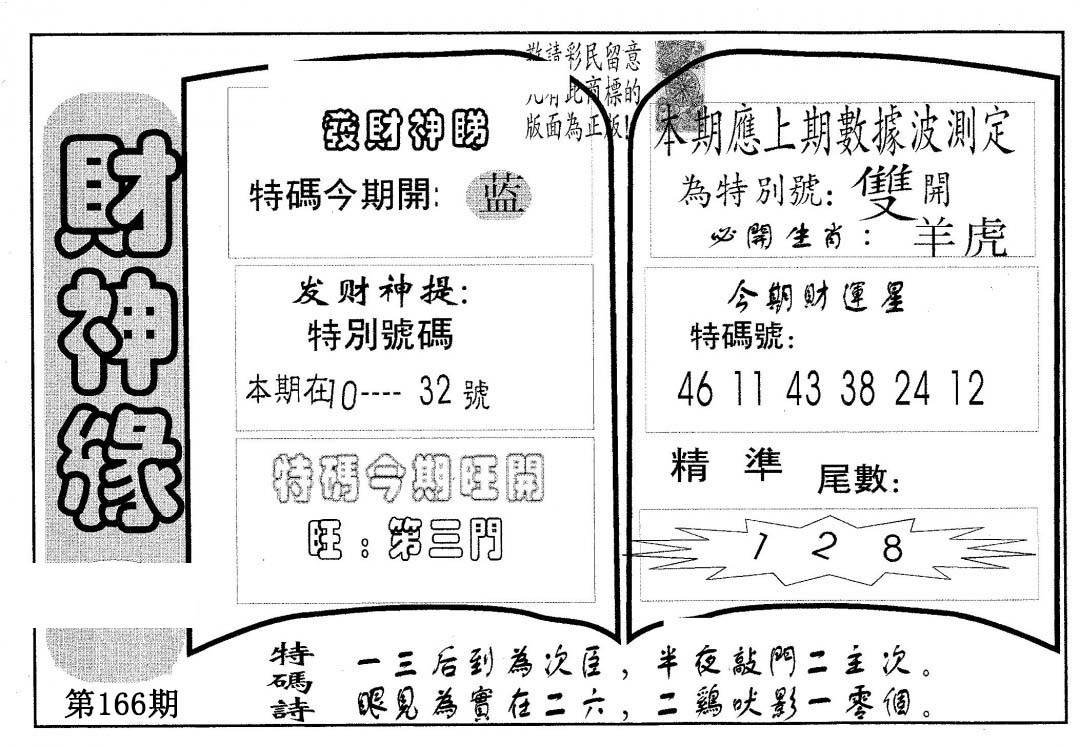 財神緣
第166期
敬請彩民留意
凡有此商標的
版面為正版!
發財神睇
特碼今期開:
蓝
发财神提:
特別號碼
本期在10---- 32號
特碼今期旺開
旺:第三門
本期應上期數據波測定
為特別號:雙開
必開生肖:羊虎
今期財運星
特碼號:
46 11 43 38 24 12
精準 尾數:
1 2 8
特碼詩
一三后到為次臣,半夜敲門二主次。
眼見為實在二六,二鷄吠影一零個。